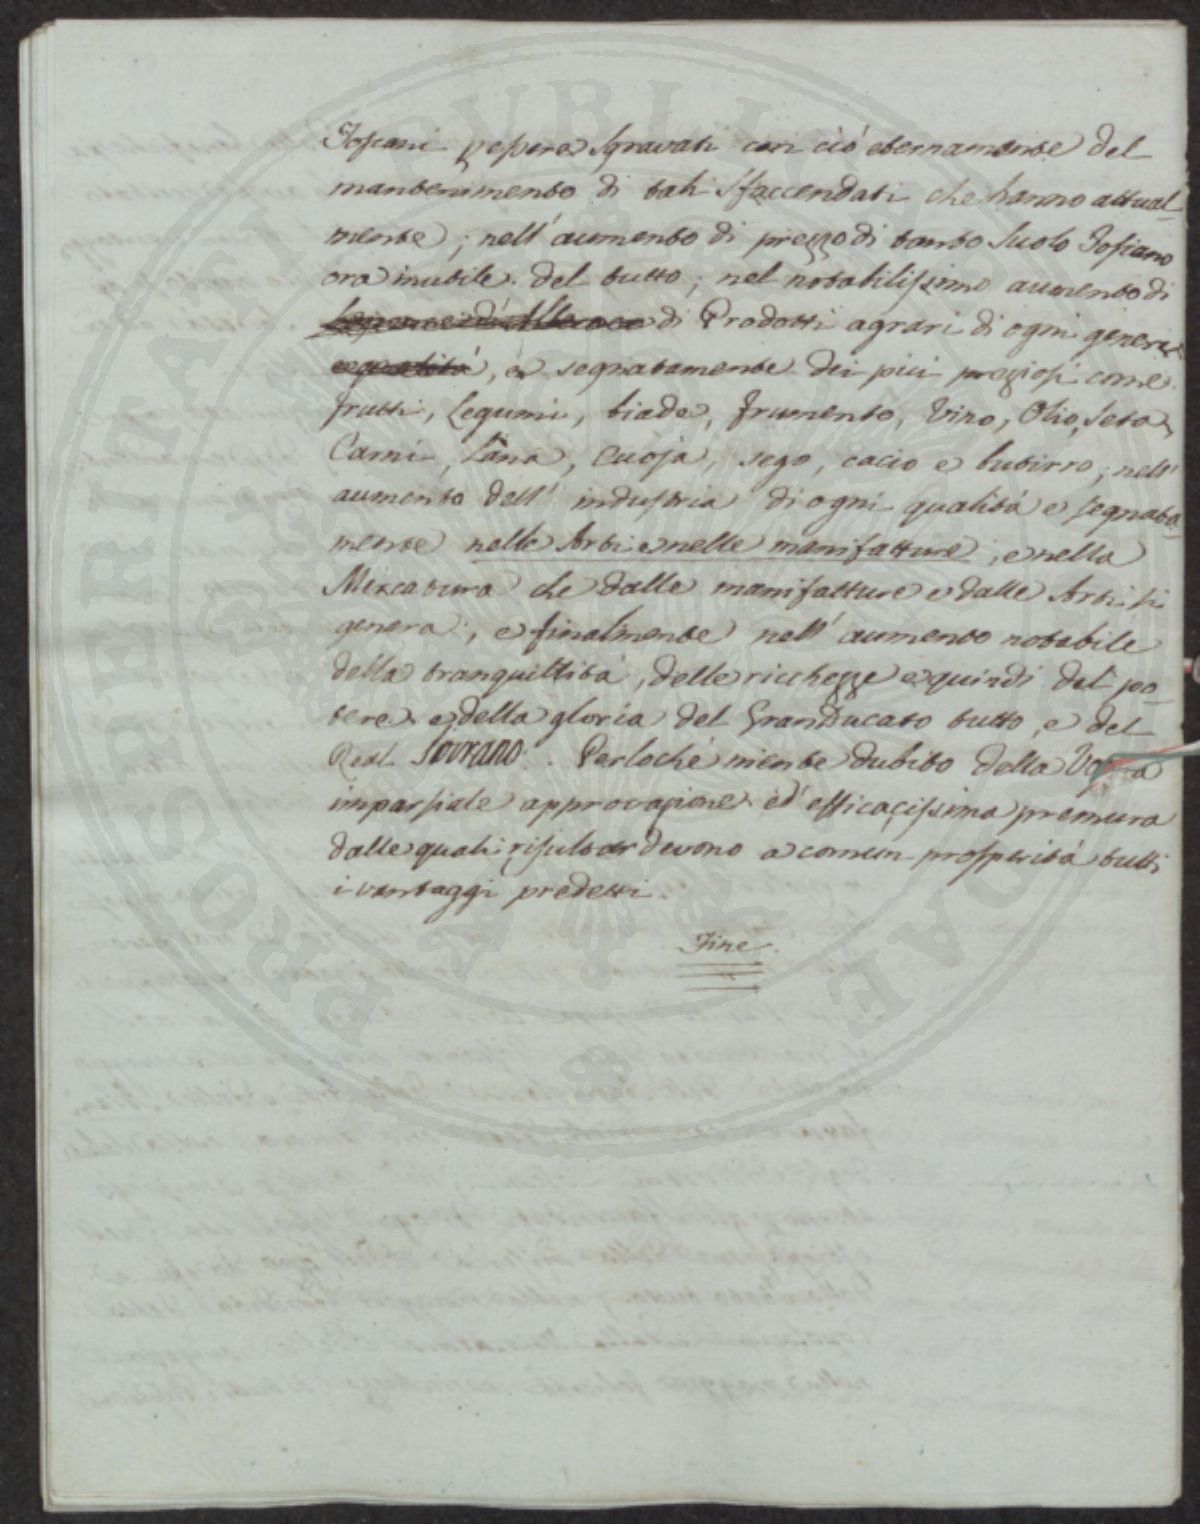 Toscani pessere sgravati con ciò eternamente del
mantenimento di tali sfaccendati che hanno attual-
mente; nell'aumento di prezzo di tanto suolo Tosiano
ora inutile del tutto; nel notabilissimo aumento di
di Prodotti agrari di ogni genere
, e segnatamente dei più preziosi come
frutti, Legumi, biade, frumento, Vino, Olio, Seta,
Carni, Lana, Cuoja, sego, cacio e butirro; nell'
aumento dell'industria di ogni qualità e segnata-
mente nelle Arti e nelle manifatture, e nella
Mercatura che dalle manifatture e dalle Arti si
genera; e finalmente nell'aumento notabile
della tranquillità, delle ricchezze e quindi del po-
tere e della gloria del GranDucato tutto, e del
Real Sovrano. Perloché niente dubito della
imparsiale approvazione ed efficacissima premura
dalle quali risultar devono a comun prosperità tutti
i vantaggi predetti.
Fine.
PROSPERITATI PUBLICAE